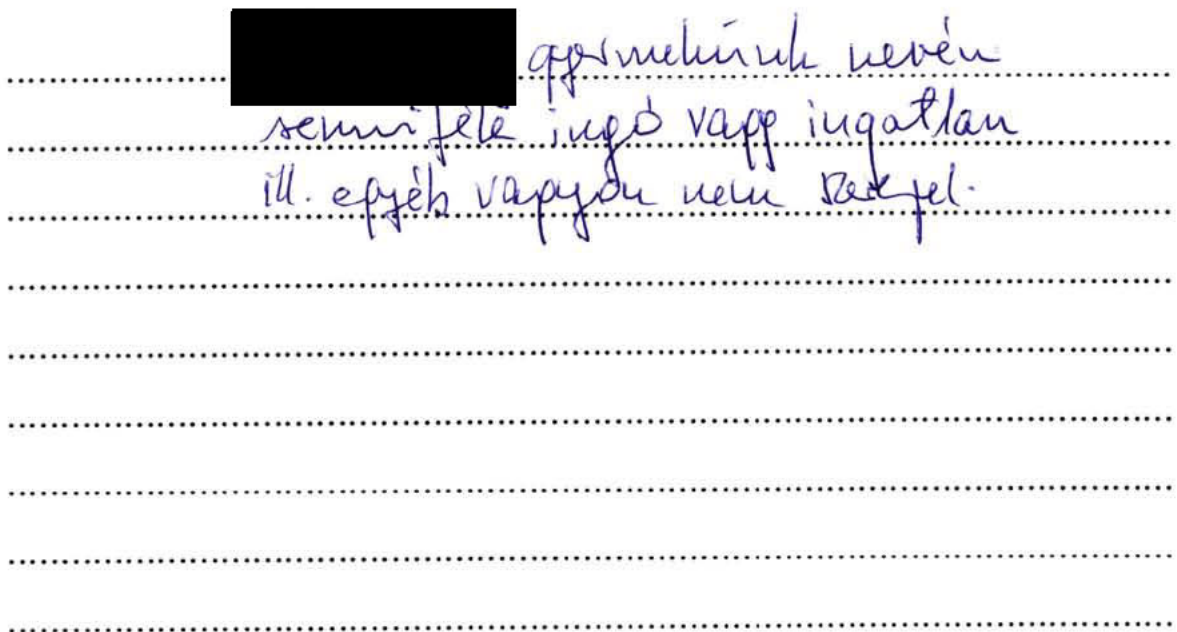 gyermekünk nevén
semmiféle ingó vagy ingatlan
ill. egyéb vagyon nem szerepel.